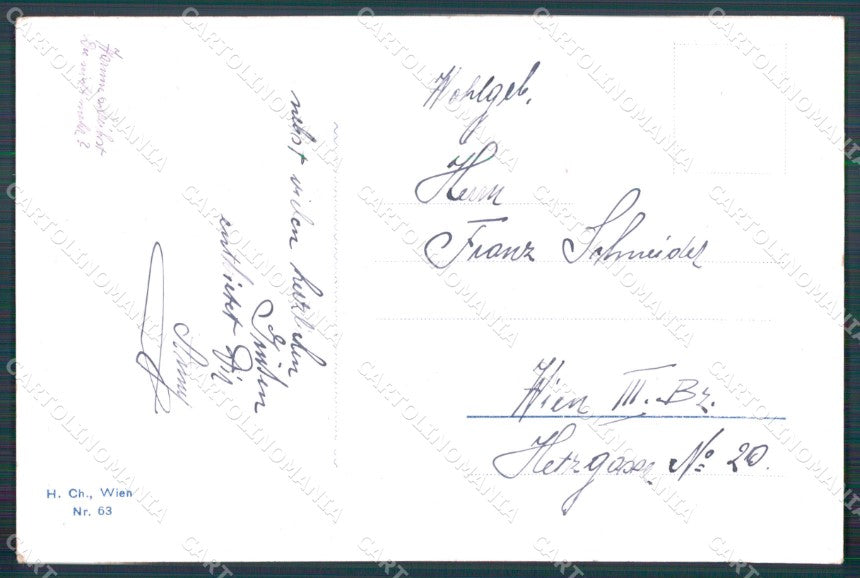 nebst vielen herzlichen
Grüßen
entbietet Dir
Wohlgeb.
Herrn
Franz Schneider
Wien III. Bz.
Hetzgasse No 20.
H. Ch., Wien
Nr. 63
CARTOLINOMANIA